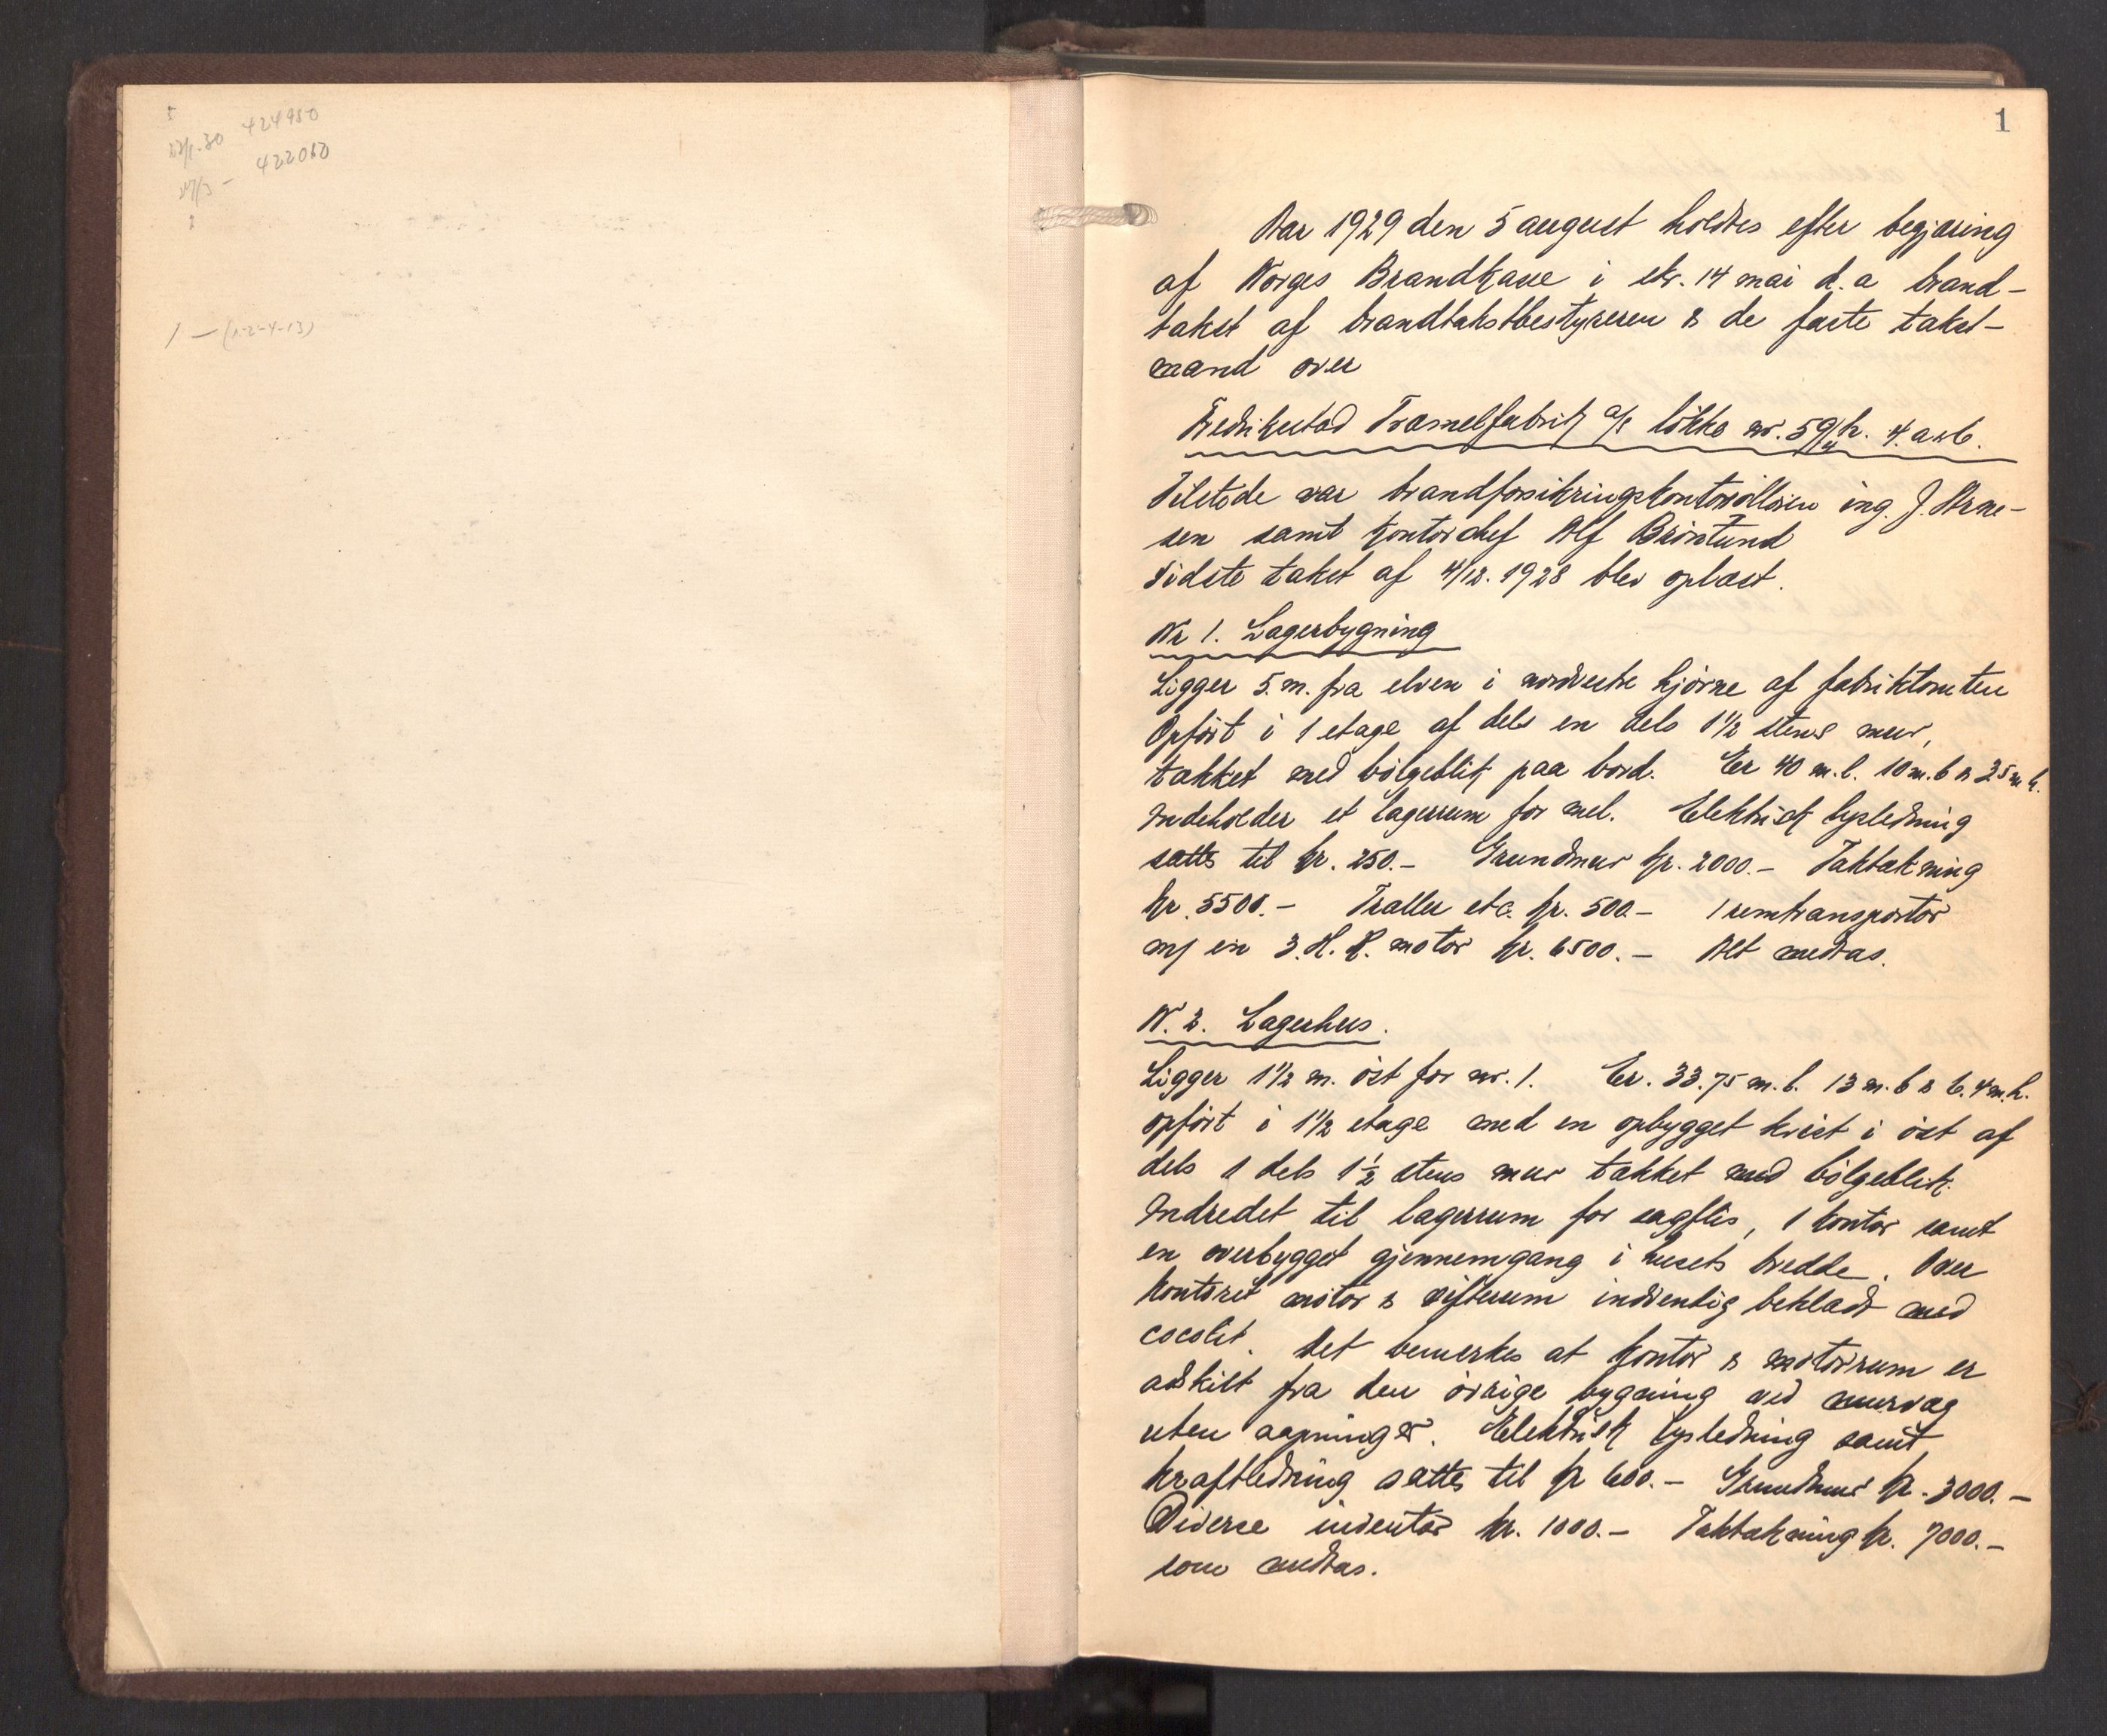 424950
422060
1 – (1-2-4-13)
1
Aar 1929 den 5 august holdtes efter begjæring
af Norges Brandkasse i skr. 14 mai d.a brand-
takst af brandtakstbestyreren & de faste takst-
mænd over
Fredrikstad Træmelfabrik a/s løkke nr. 59 4.
Tilstede var brandforsikringskontrolløren ing. J. Arne-
sen samt kontorchef Alf
Sidste takst af 4/12. 1928 blev oplæst.
Nr 1. Lagerbygning
Ligger 5. m. fra elven i nordvestre hjørne af fabriktomten
Opført i 1 etage af dels en dels 1½ stens mur,
tækket med bølgeblik paa bord. Er 40 m. l. 10 m. b & 3.5 m h.
Indeholder et lagerrum for mel. Elektrisk lysledning
sættes til kr. 250.– Grundmur kr. 2000.– Taktækning
kr. 5500.– Traller etc. kr. 500– 1 remtransportør
m/ en 3. H.K. motor kr. 6500.– Alt medtas.
N. 2. Lagerhus.
Ligger 1½ m. øst for nr. 1. Er. 33.75 m. l. 13 m. b & 6.4 m. h.
opført i 1½ etage med en opbygget kvist i øst af
dels 1 dels 1½ stens mur tækket med bølgeblik.
Indredet til lagerrum for sagflis, 1 kontor samt
en overbygget gjennemgang i husets bredde. Over
kontoret motor & vifterum indvendig beklædt med
cocolit. Det bemerkes at kontor & motorrum er
adskilt fra den øvrige bygning ved murvæg
uten aapninger. Elektrisk lysledning samt
kraftledning sættes til kr 600.– Grundmur kr. 3000.–
Diverse inventar kr. 1000.– Taktækning kr. 7000.–
som medtas.